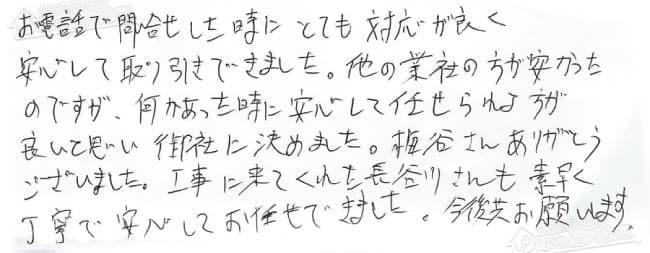 お電話で問合せした時に とても 対応が良く
安心して取り引きできました。他の業社の方が安かった
のですが、何かあった時に安心して任せられる方が
良いと思い 御社に決めました。梅谷さんありがとう
ございました。工事に来てくれた長谷川さんも 素早く
丁寧で 安心してお任せできました。今後共お願いします。